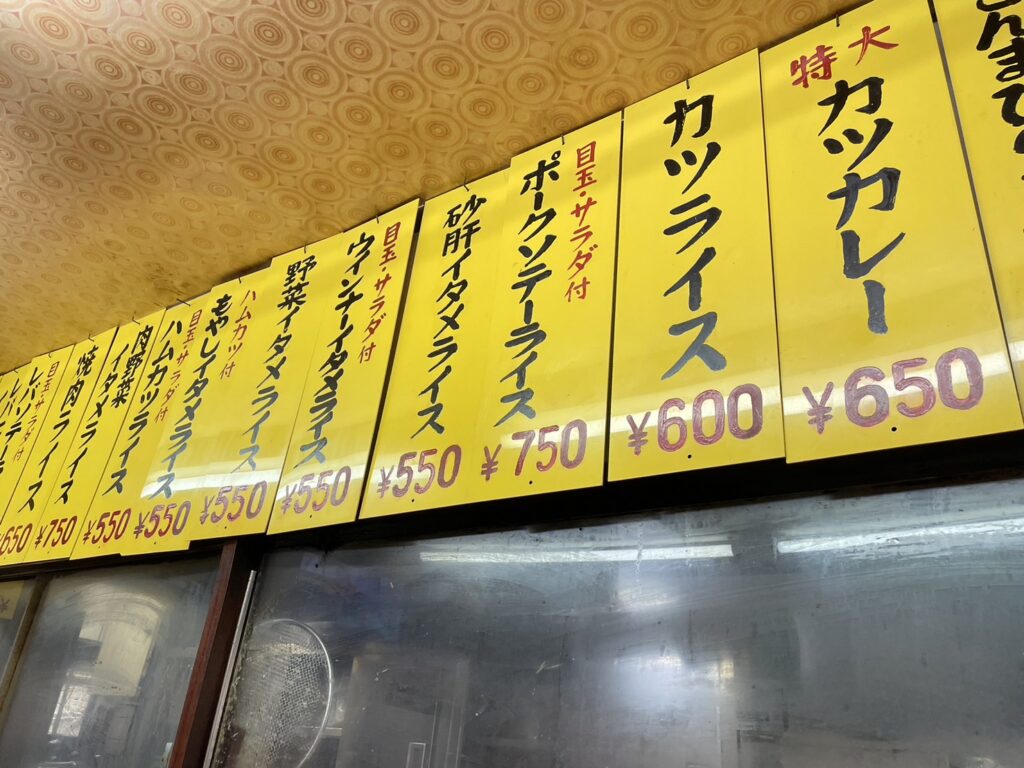 特大
カツカレー
¥650
カツライス
¥600
目玉・サラダ付
ポークソテーライス
¥750
砂肝イタメライス
¥550
目玉・サラダ付
ウインナーイタメライス
¥550
野菜イタメライス
¥550
ハムカツ付
もやしイタメライス
¥550
目玉・サラダ付
ハムカツライス
¥550
肉野菜
イタメライス
¥750
焼肉ライス
¥650
目玉・サラダ付